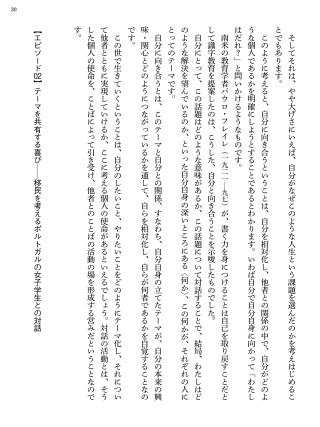 30
　そしてそれは、やや大げさにいえば、自分がなぜこのような人生という課題を選んだのかを考えはじめるこ
とでもあります。
　このように考えると、自分に向き合うということは、自分を相対化し、他者との関係の中で、自分がどのよ
うな個人であるかを明確にしようとすることであるとわかります。いわば自分で自分自身に向かって「わたし
はだれ？」と問いかけるようなものです。
　南米の教育学者パウロ・フレイレ（一九二一―九七）が、書く力を身につけることは自己を取り戻すことだと
して識字教育を提案したのは、こうした、自分と向き合うことを示唆したものでした。
　自分にとって、この話題はどのような意味があるか、この話題について対話することで、結局、わたしはど
のような解決を望んでいるのか、といった自分自身の深いところにある〈何か〉、この何かが、それぞれの人に
とってのテーマです。
　自分に向き合うとは、このテーマと自分との関係、すなわち、自分自身の立てたテーマが、自分の本来の興
味・関心とどのようにつながっているかを通して、自らを相対化し、自らが何者であるかを自覚することなので
す。
　この世で生きていくということは、自分のしたいこと、やりたいことをどのようにテーマ化し、それについ
て他者とともに実現していけるか、ここに考える個人の使命があるといえるでしょう。対話の活動とは、そう
した個人の使命を、ことばによって引き受け、他者とのことばの活動の場を形成する営みだということなので
す。
【エピソード02】テーマを共有する喜び――移民を考えるポルトガルの女子学生との対話